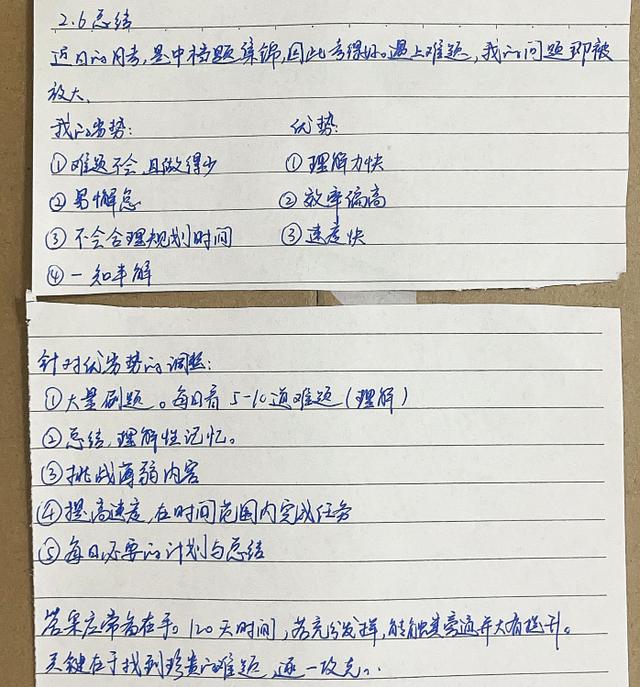 2.6总结
近日的月考,是中档题集锦,因此考得好。遇上难题,我的问题即被
放大。
我的劣势: 优势:
①难题不会,且做得少 ①理解力快
②易懈怠 ②效率偏高
③不会合理规划时间 ③速度快
④一知半解
针对优劣势的调整:
①大量刷题。每日看5-10道难题(理解)
②总结,理解性记忆。
③挑战薄弱内容
④提高速度,在时间范围内完成任务
⑤每日必要的计划与总结
常备在手。120天时间,若充分发挥,能触类旁通并大有提升。
关键在于找到珍贵的难题,逐一攻克。